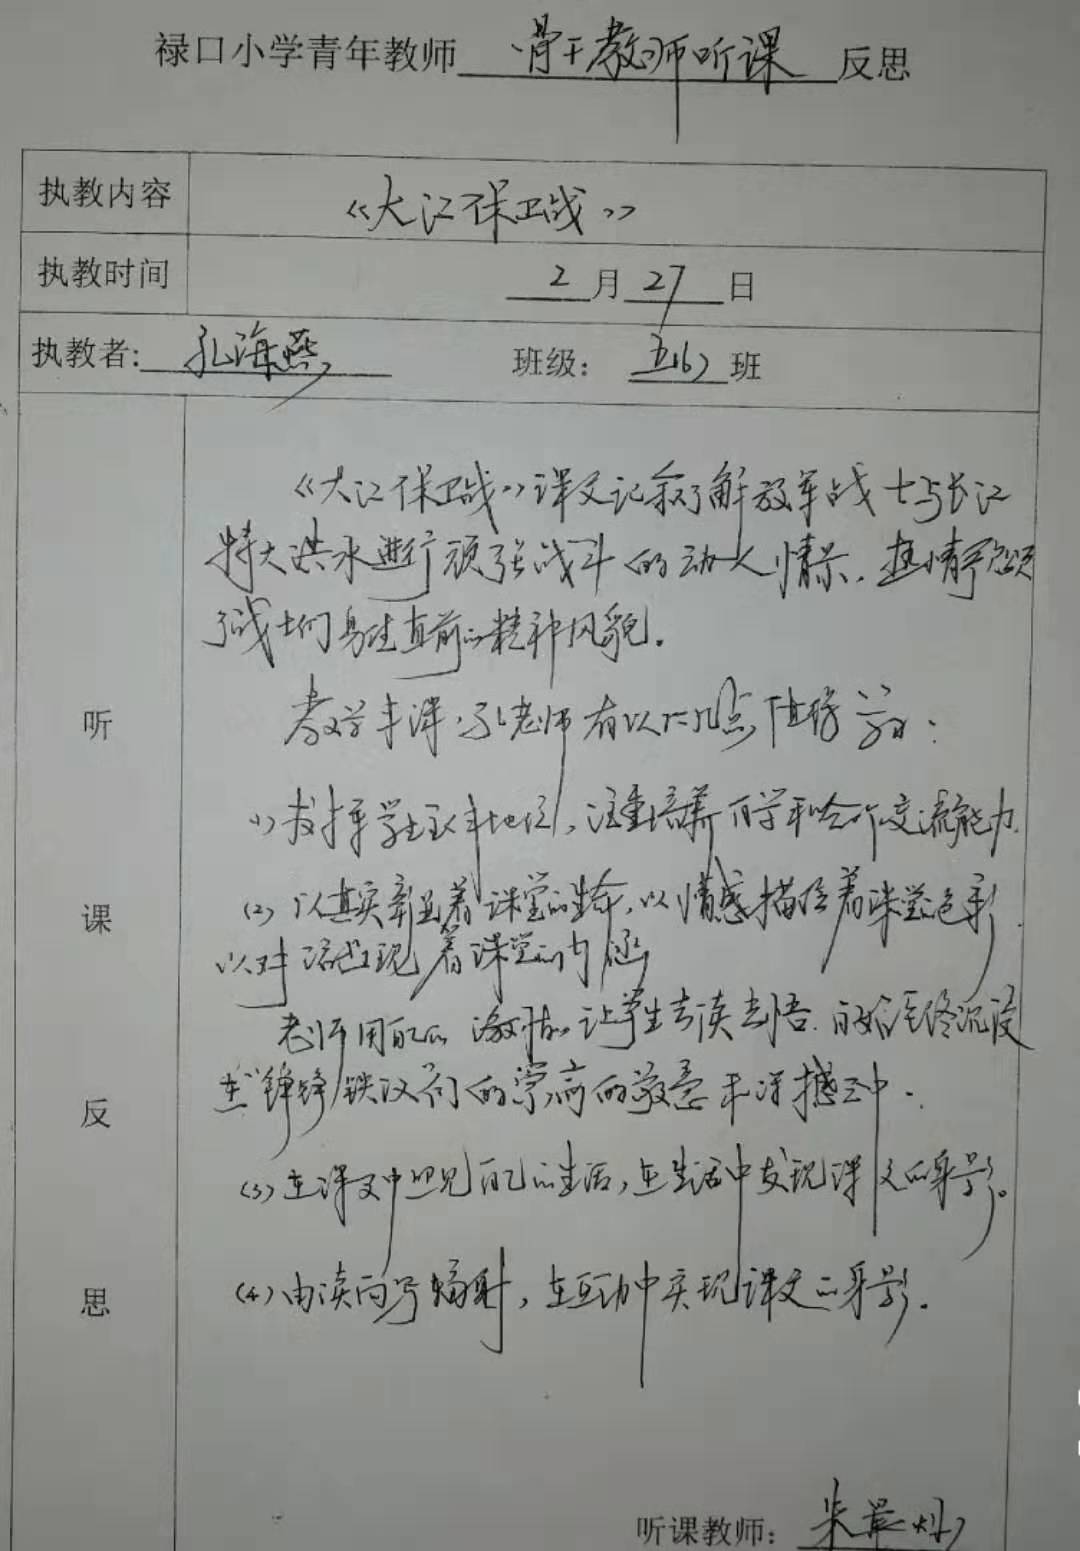 禄口小学青年教师 骨干教师听课 反思
执教内容 《大江保卫战》
执教时间 2月27日
执教者: 孔海燕 班级: 班
听课反思
《大江保卫战》课文记叙了解放军战士与长江
特大洪水进行顽强战斗的动人情景,热情歌颂
了战士们勇往直前的精神风貌。
教学本课,孔老师有以下几点值得学习:
(1)发挥学生主体地位,注重培养自学和合作交流能力
(2)以真实牵着课堂的生命,以情感描绘着课堂色彩
以对话呈现着课堂的内涵
老师用自己的激情让学生去读去悟.自始至终沉浸
在"铮铮铁汉"们的崇高的敬意和震撼之中。
(3)在课文中照见自己的生活,在生活中发现课文的身影。
(4)由读向写辐射,在互动中实现课文的身影.
听课教师: 朱